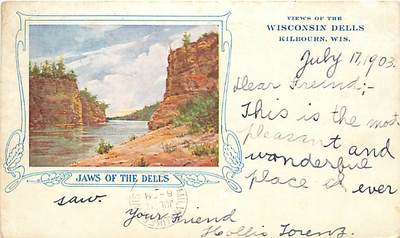 VIEWS OF THE
WISCONSIN DELLS
KILBOURN, WIS.
July 17, 1903.
Dear Freind;-
This is the most
pleasant and
wonderful
place I ever
JAWS OF THE DELLS
saw.
Your Friend
Hollis Lorenz.